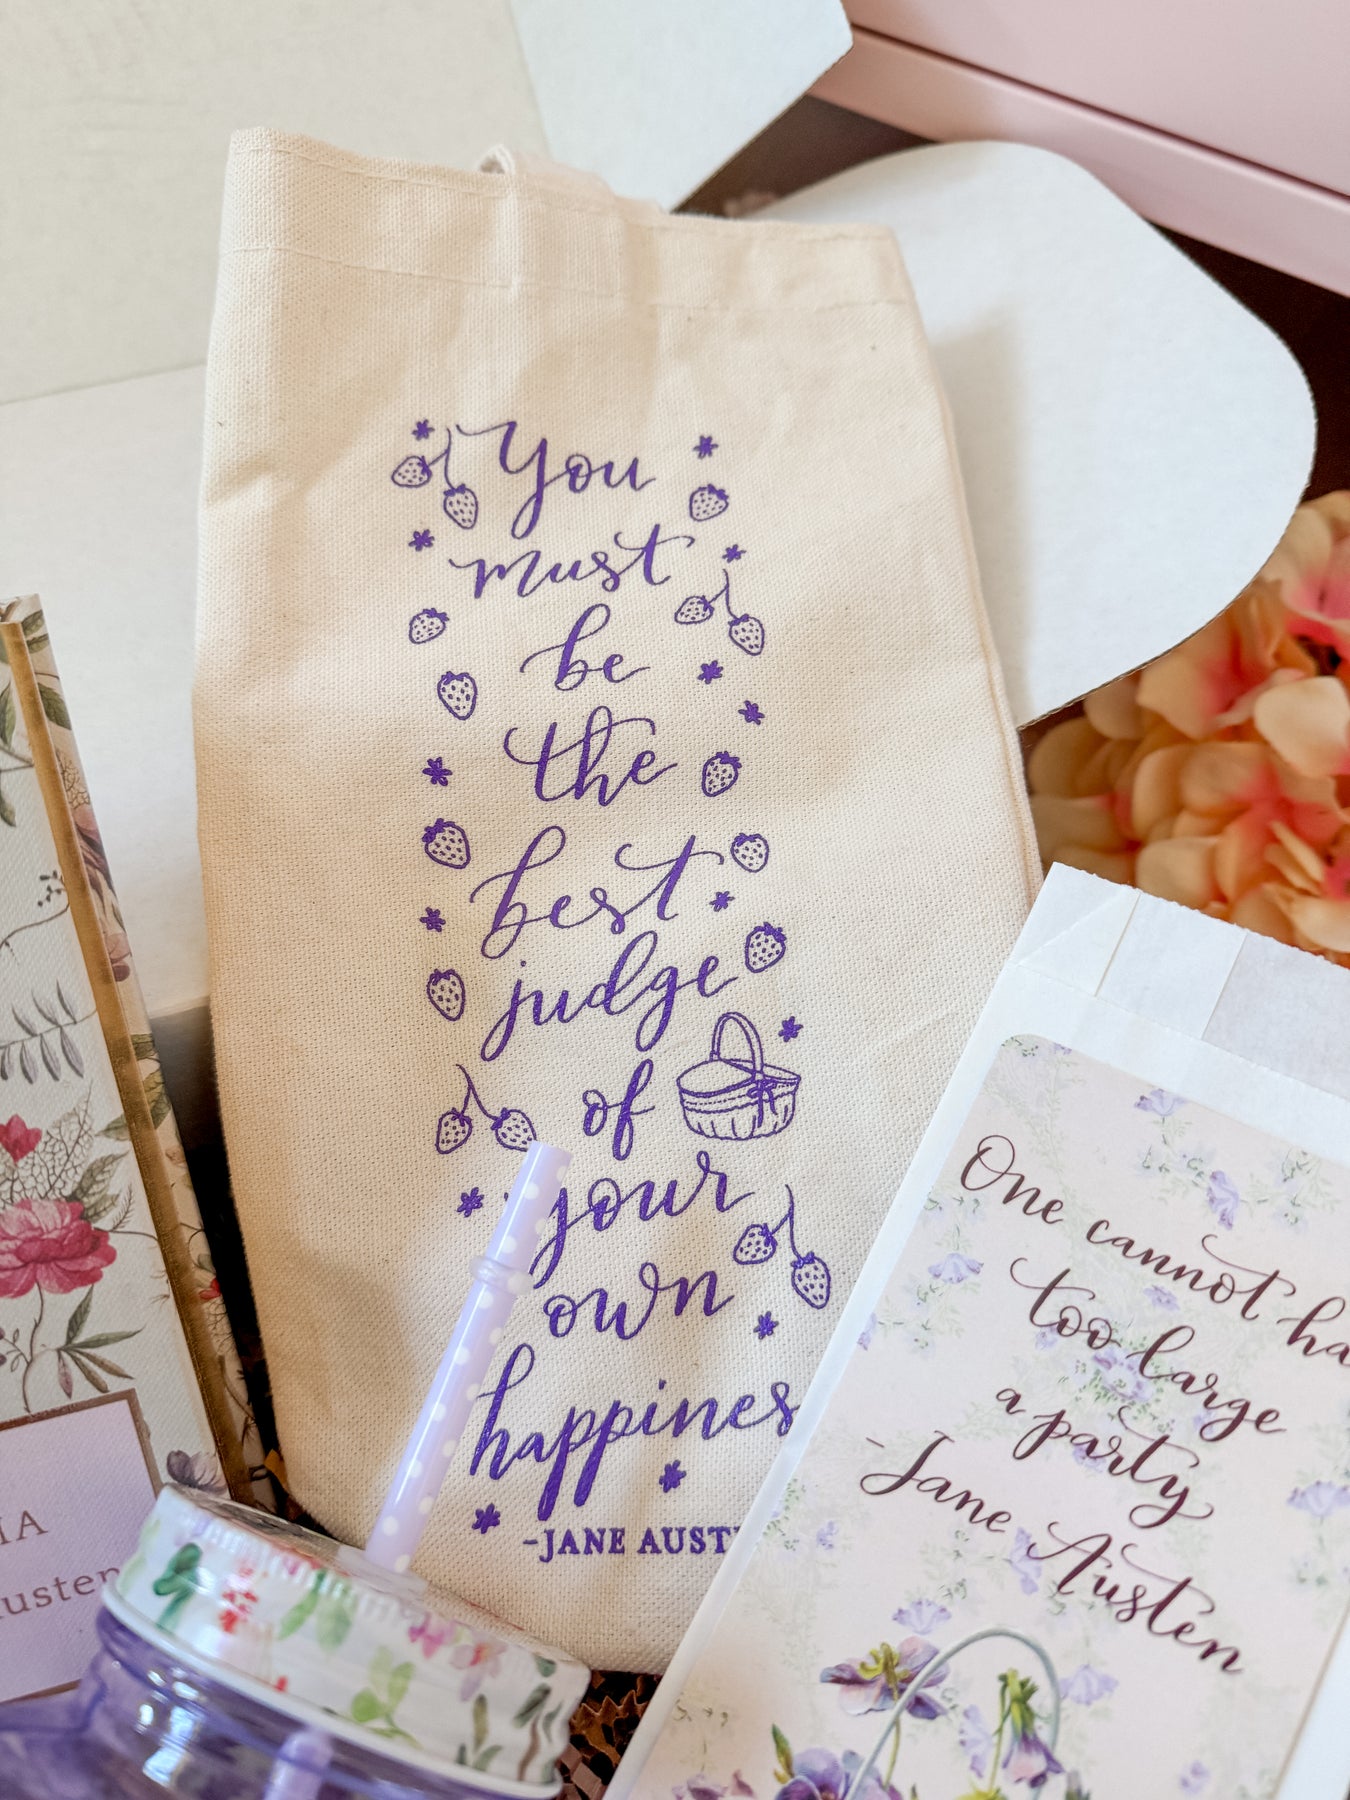 You
must
be
the
best
judge
of
your
own
happines
-JANE AUST
One cannot ha
too large
a party
-Jane Austen
IA
usten